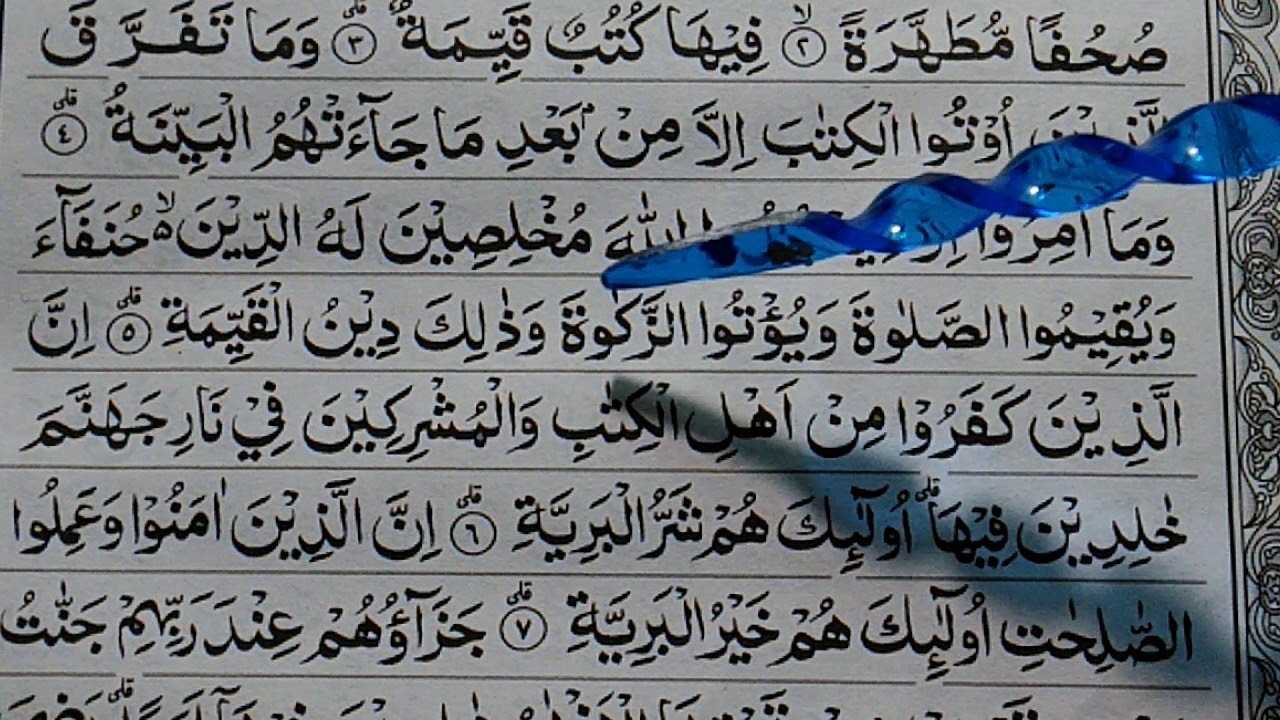 صُحُفًا مُّطَهَّرَةً ۙ ﴿٢﴾ فِيْهَا كُتُبٌ قَيِّمَةٌ ۗ ﴿٣﴾ وَمَا تَفَرَّقَ
اُوْتُوا الْكِتٰبَ اِلَّا مِنْۢ بَعْدِ مَا جَاۤءَتْهُمُ الْبَيِّنَةُ ۗ ﴿٤﴾
وَمَآ اُمِرُوْٓا اللّٰهَ مُخْلِصِيْنَ لَهُ الدِّيْنَ ەۙ حُنَفَاۤءَ
وَيُقِيْمُوا الصَّلٰوةَ وَيُؤْتُوا الزَّكٰوةَ وَذٰلِكَ دِيْنُ الْقَيِّمَةِ ۗ ﴿٥﴾ اِنَّ
الَّذِيْنَ كَفَرُوْا مِنْ اَهْلِ الْكِتٰبِ وَالْمُشْرِكِيْنَ فِيْ نَارِ جَهَنَّمَ
خٰلِدِيْنَ فِيْهَا ۗ اُولٰۤىِٕكَ هُمْ شَرُّ الْبَرِيَّةِ ۗ ﴿٦﴾ اِنَّ الَّذِيْنَ اٰمَنُوْا وَعَمِلُوا
الصّٰلِحٰتِ اُولٰۤىِٕكَ هُمْ خَيْرُ الْبَرِيَّةِ ۗ ﴿٧﴾ جَزَاۤؤُهُمْ عِنْدَ رَبِّهِمْ جَنّٰتُ